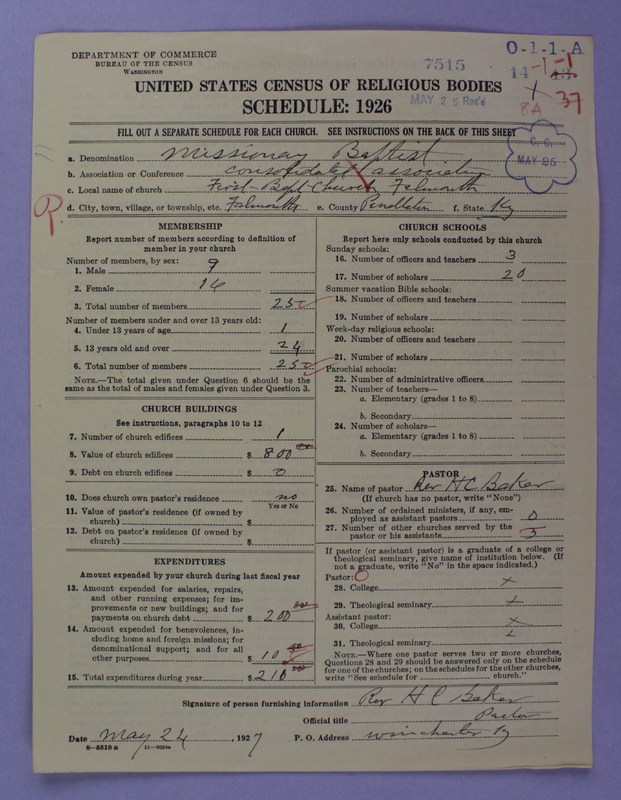 DEPARTMENT OF COMMERCE
BUREAU OF THE CENSUS
WASHINGTON
7515
O-1-1-A
14 -1-1
43
37
8A
UNITED STATES CENSUS OF RELIGIOUS BODIES
SCHEDULE: 1926
MAY 25 Rec'd
FILL OUT A SEPARATE SCHEDULE FOR EACH CHURCH. SEE INSTRUCTIONS ON THE BACK OF THIS SHEET
C. C.
MAY 26
a. Denomination Missionary Baptist
b. Association or Conference consolidated association
c. Local name of church First Bapt Church Falmouth
d. City, town, village, or township, etc. Falmouth e. County Pendleton f. State Ky
R.
MEMBERSHIP
Report number of members according to definition of
member in your church
Number of members, by sex:
1. Male 9
2. Female 16
3. Total number of members 25
Number of members under and over 13 years old:
4. Under 13 years of age 1
5. 13 years old and over 24
6. Total number of members 25
NOTE.—The total given under Question 6 should be the
same as the total of males and females given under Question 3.
CHURCH BUILDINGS
See instructions, paragraphs 10 to 12
7. Number of church edifices 1
8. Value of church edifices $ 800
9. Debt on church edifices $ 0
10. Does church own pastor's residence no
Yes or No
11. Value of pastor's residence (if owned by
church) $
12. Debt on pastor's residence (if owned by
church) $
EXPENDITURES
Amount expended by your church during last fiscal year
13. Amount expended for salaries, repairs,
and other running expenses; for im-
provements or new buildings; and for
payments on church debt $ 200
14. Amount expended for benevolences, in-
cluding home and foreign missions; for
denominational support; and for all
other purposes $ 10
15. Total expenditures during year $ 210
CHURCH SCHOOLS
Report here only schools conducted by this church
Sunday schools:
16. Number of officers and teachers 3
17. Number of scholars 20
Summer vacation Bible schools:
18. Number of officers and teachers
19. Number of scholars
Week-day religious schools:
20. Number of officers and teachers
21. Number of scholars
Parochial schools:
22. Number of administrative officers
23. Number of teachers—
a. Elementary (grades 1 to 8)
b. Secondary
24. Number of scholars—
a. Elementary (grades 1 to 8)
b. Secondary
PASTOR
25. Name of pastor Rev H C Baker
(If church has no pastor, write "None")
26. Number of ordained ministers, if any, em-
ployed as assistant pastors 0
27. Number of other churches served by the
pastor or his assistants 3
If pastor (or assistant pastor) is a graduate of a college or
theological seminary, give name of institution below. (If
not a graduate, write "No" in the space indicated.)
Pastor:
28. College x
29. Theological seminary x
Assistant pastor:
30. College x
31. Theological seminary x
NOTE.—Where one pastor serves two or more churches,
Questions 28 and 29 should be answered only on the schedule
for one of the churches; on the schedules for the other churches,
write "See schedule for church."
Signature of person furnishing information Rev H C Baker
Official title Pastor
Date May 24, 1927 P. O. Address Winchester Ky
8-5518 a 11-9024a